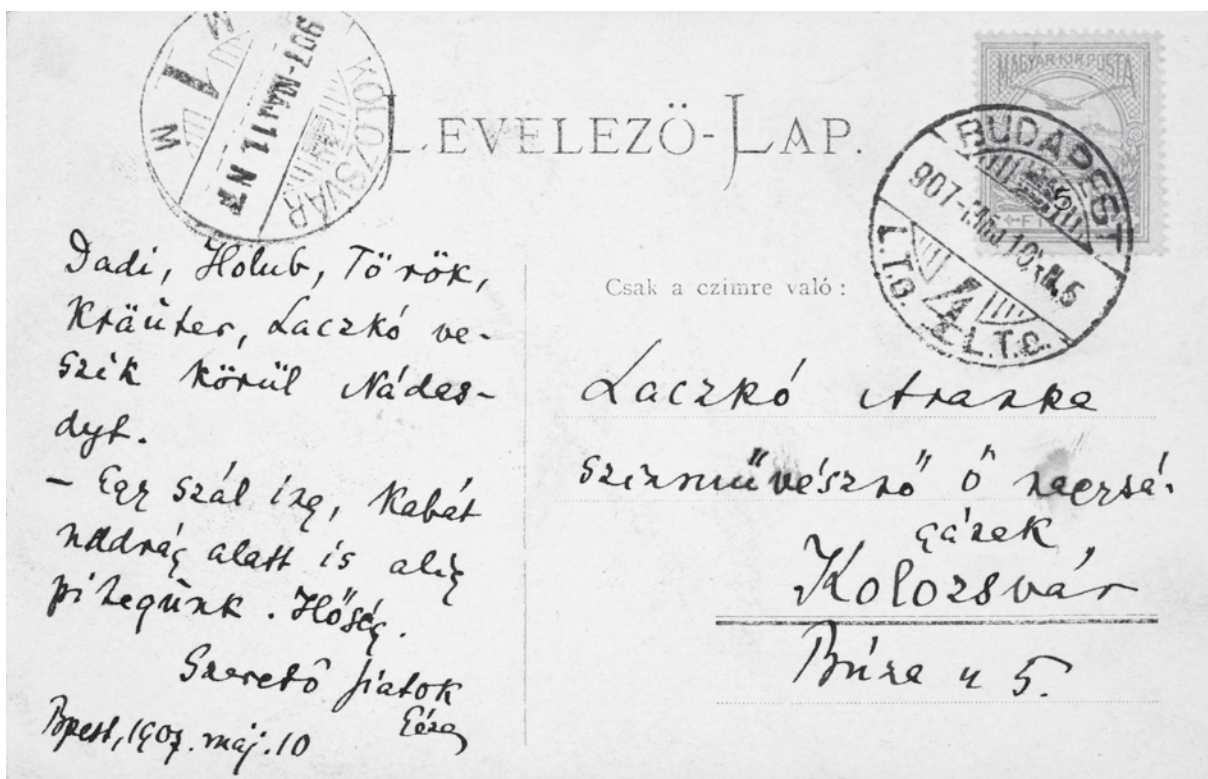 KOLOZSVÁR
907-MÁJ 11. N7
M 1 M
LEVELEZŐ-LAP.
MAGYAR KIR. POSTA
BUDAPEST
907-MÁJ 10
L.T.O. 4 L.T.O.
Dadi, Holub, Török,
Kräuter, Laczkó ve-
szik körül Nádas-
dyt.
- Egy szál ing, kabát
nadrág alatt is alig
pihegünk. Hőség.
Szerető fiatok
Géza
Bpest, 1907. máj. 10
Csak a czimre való:
Laczkó Aranka
szinművésznő ő nagysá-
gának
Kolozsvár,
Búza u 5.